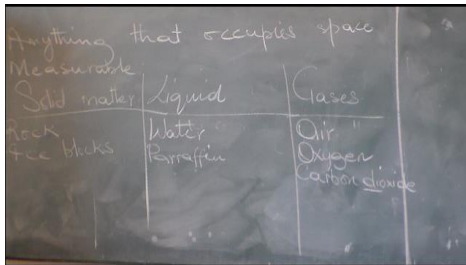 Anything that occupies space
Measurable
Solid matter Liquid Gases
Rock Water Air
Ice blocks Parraffin Oxygen
Carbon dioxide